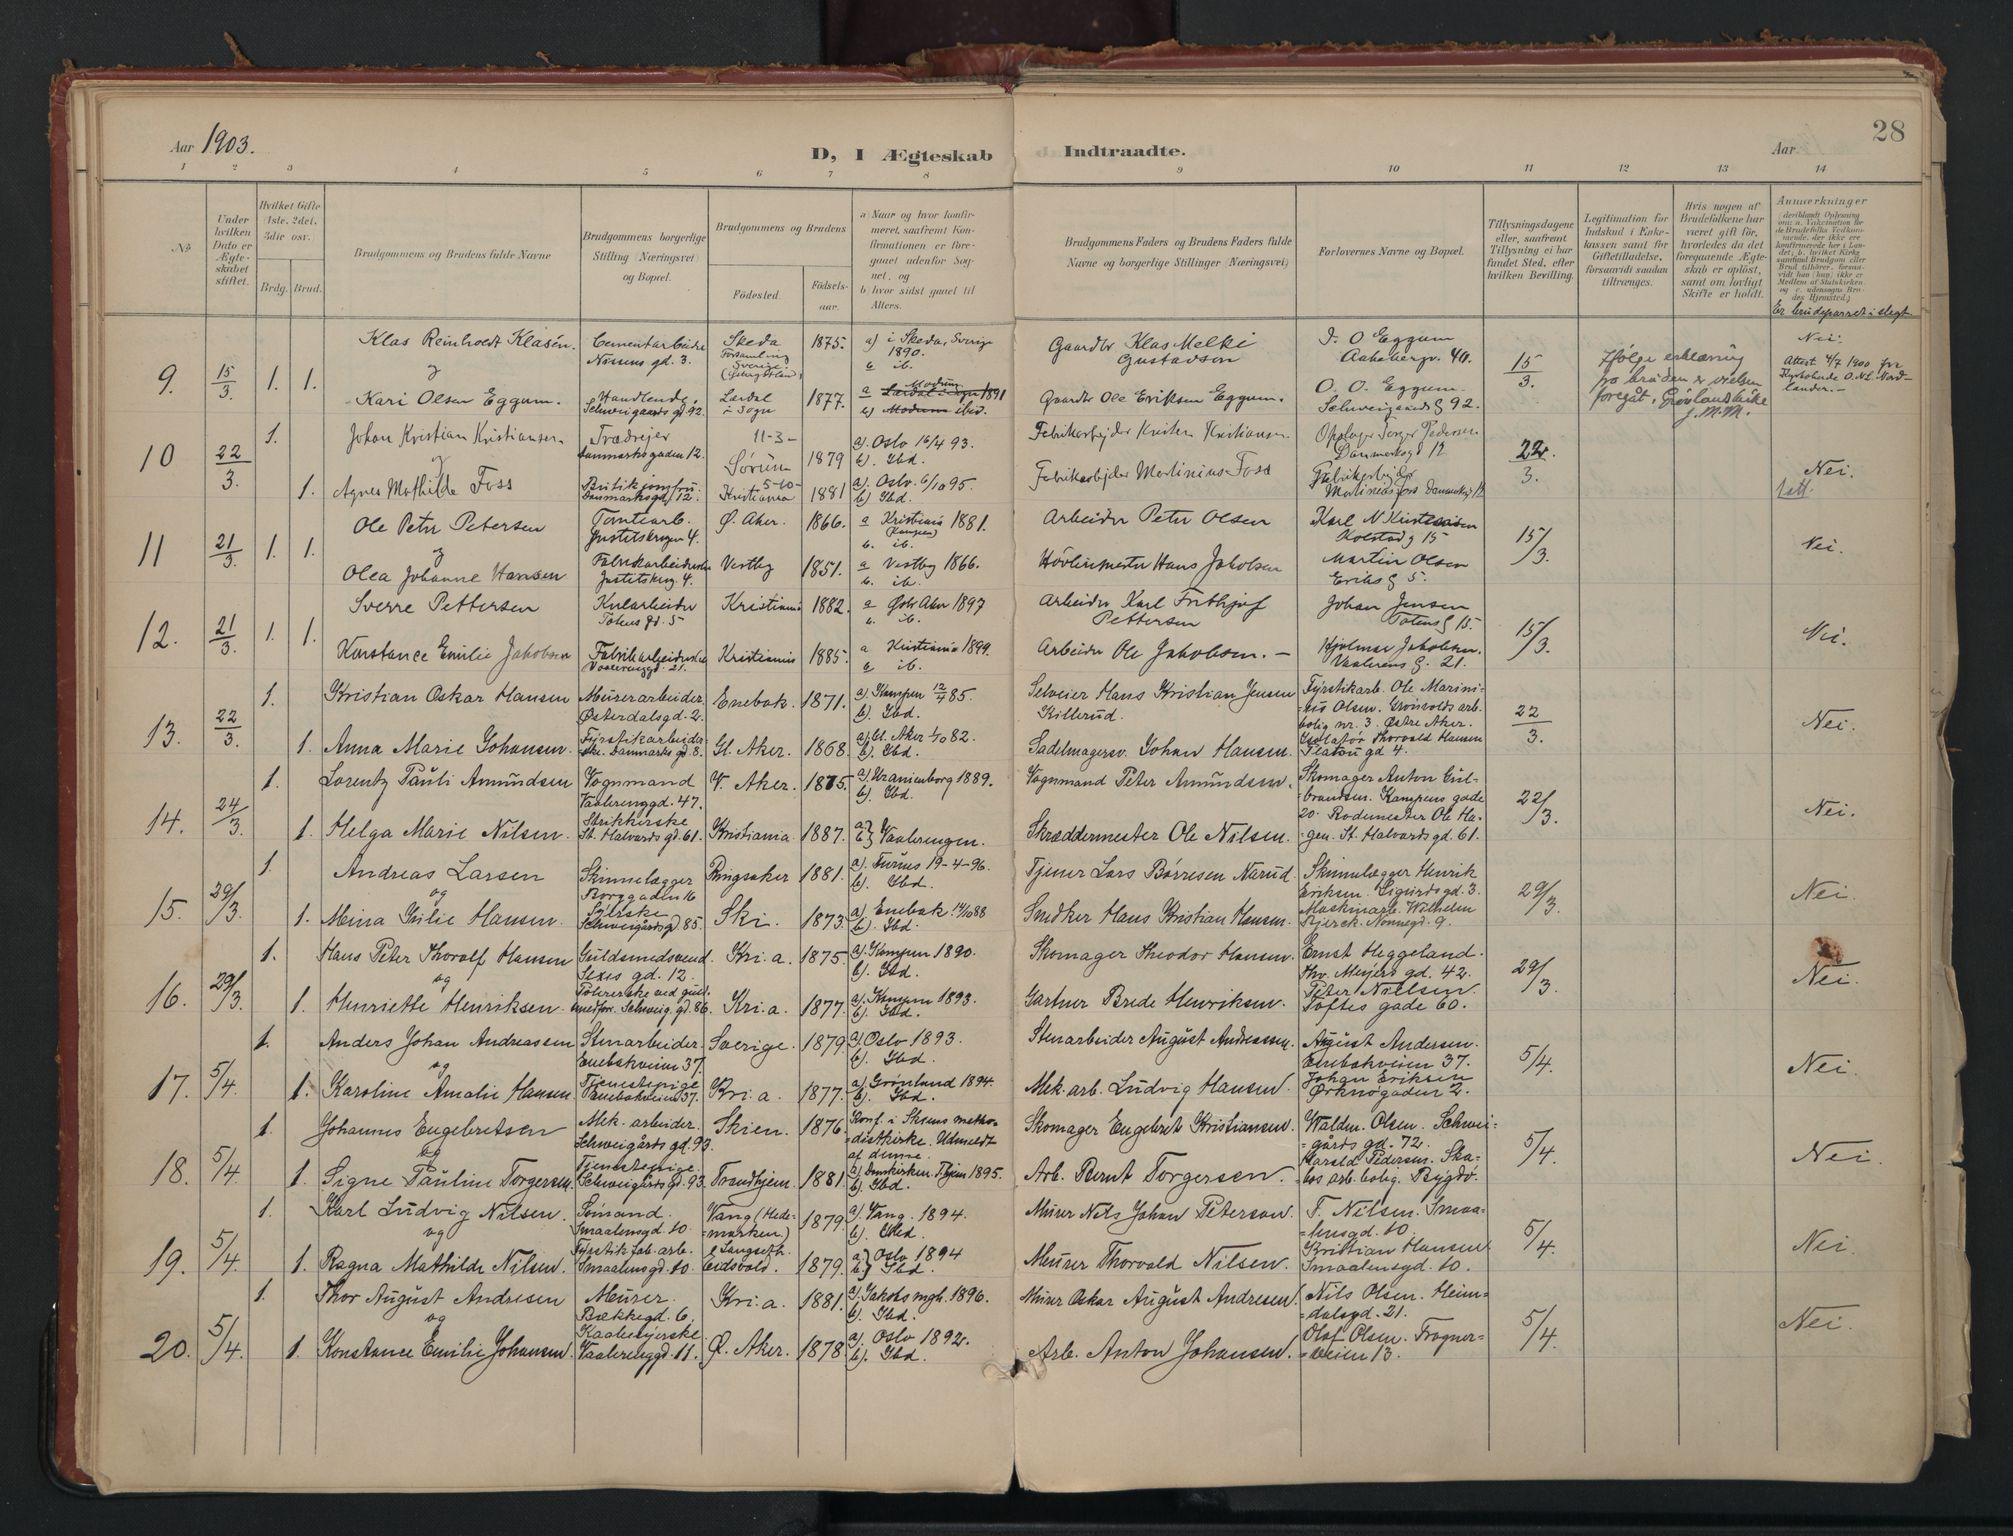 Aar 1903.
D, I Ægteskab Indtraadte.
Aar 28
1 2 3 4 5 6 7 8 9 10 11 12 13 14
No
Under hvilken Dato er Ægteskabet stiftet.
Hvilket Gifte (1ste, 2det, 3die osv.
Brdg. Brud.
Brudgommens og Brudens fulde Navne
Brudgommens borgerlige Stilling (Næringsvei) og Bopæl.
Brudgommens og Brudens
Fødested.
Fødselsaar.
a) Naar og hvor konfirmeret, saafremt Konfirmationen er foregaaet udenfor Sognet, og
b hvor sidst gaaet til Alters.
Brudgommens Faders og Brudens Faders fulde Navne og borgerlige Stillinger (Næringsvei)
Forlovernes Navne og Bopæl.
Tillysningsdagene eller, saafremt Tillysning ei har fundet Sted, efter hvilken Bevilling.
Legitimation for Indskud i Enkekassen samt for Giftetilladelse, forsaavidt saadan tiltrænges.
Hvis nogen af Brudefolkene har været gift før, hvorledes da det foregaaende Ægteskab er opløst, samt om lovligt Skifte er holdt.
Anmærkninger
Er brudeparret i slegt
9. 15/3 1. 1.
Klas Reinholdt Klasén Cementarbeider Skeda 1875. a) i Skeda, Sverige Gaardbr Klas Melki J. O Eggum Nei.
Nissens gd. 3. Forsamling Sverige 1890. Gustavson Aakebergv. 40. 15/3. Ifølge erklæring Attest 4/7 1900 fra
og b ib. fra bruden er vielsen
Kari Olsen Eggum. Handlende Lærdal 1877. a Modum Lærdal Sogn 1891 Gaardbr Ole Eriksen Eggum. O. O. Eggum. foregåt i Grønlands kirke
Schweigaards gd 92. i Sogn b) Modum ibid. Schweigaards g 92. J.M.M.
10 22/3. 1.
Johan Kristian Kristiansen 11-3- a). Oslo 16/4 93. Fabrikarbejder Kristen Kristiansen Pedersen
og Danmarksgaden 12. Sørum 1879 b). Ibd. Danmarksgd 12 22/3. Nei.
1. Agnes Mathilde Foss Butikjomfru 5-10- Kristiania 1881 a). Oslo. 6/10 95. Fabrikarbejder Martinius Foss Fabrikarbejder
Danmarksgd 12. b) Ibd. Martinius Foss Danmarksg 12
11 21/3. 1. 1.
Ole Petr Petersen Tomtearb. Ø. Aker. 1866. a Kristiania 1881. Arbeider Peter Olsen Karl N Kristensen 15/3 Nei.
og Justitskrogen 4 (Kampen) b. ib. Kolstad g 15
Olea Johanne Hansen Fabrikarbeiderske Vestby 1851. a Vestby 1866. Hövlemester Hans Jakobsen Martin Olsen
Justitskrog 4. b. ib. Eriks g 5.
12. 21/3. 1. 1.
Sverre Pettersen Kularbeider Kristiania 1882. a Østr Aker 1897 Arbeider Karl Frithjof Johan Jensen 15/3. Nei.
Totens gd. 5 b. ib. Pettersen Totens g 15.
Konstance Emilie Jakobsen Fabrikarbeiderske Kristiania 1885. a Kristiania 1899. Arbeider Ole Jakobsen. – Hjalmar Jakobsen.
Vaalerengd. 21. b ib. Vaalerens g. 21.
13. 22/3. 1.
Kristian Oskar Hansen Murerarbeider. Enebak. 1871. a). Kampen 12/4 85. Selveier Hans Kristian Jensen Fyrstikarb. Ole Marini- 22/3. Nei.
Østerdalsgd. 2. b). Ibd. Killerud. =us Olsen. Grønvolds arb. bolig nr. 3 Østre Aker.
1. Anna Marie Johansen. Fyrstikarbeider- Gl. Aker. 1868. a) Gl. Aker 1/10 82. Sadelmagersv. Johan Hansen. Isolatør Thorvald Hansen
ske. Danmarks gd 8. b). Ibd. Platou gd 4.
14. 24/3. 1.
Lorentz Pauli Amundsen Vognmand V. Aker. 1875. a) Uranienborg 1889. Vognmand Peter Amundsen. Skomager Anton Gul- 22/3. Nei.
Vaalerenggd. 47. b). Ibd. =brandsen. Kampens gade
1. Helga Marie Nilsen. Strikkerske Kristiania. 1887. a) b) Vaalerengen. Skræddermester Ole Nilsen. 20. Rodemester Ole Ha-
St. Halvards gd. 61. =gen. St. Halvards gd. 61.
15. 29/3. 1.
Andreas Larsen Skindlægger Ringsaker 1881. a). Furnes 19-4-96. Tjener Lars Børresen Narud. Skinnelægger Henrik 29/3. Nei.
og Borggaden 16 b). Ibd. Eriksen. Sigurdsgd. 3.
1. Meina Julie Hansen. Syerske Ski. 1873. a) Enebak 14/10 88 Smedker Hans Kristian Hansen. Maskinarb. Wilhelm
Schweigårds gd 85. b). Ibd. Bjerck. Nonnegd. 9.
16. 29/3. 1.
Hans Peter Thorolf Hansen Guldsmedsvend. Kri.a. 1875. a). Kampen 1890. Skomager Theodor Hansen. Ernst Heggeland. 29/3. Nei.
og Sexis gd. 12. b). Ibd. Thv. Meyers gd. 42.
1. Henriette Henriksen. Polererske ved guld- Kri.a. 1877. a). Kampen 1893. Gartner Brede Henriksen. Peter Nielsen.
Schweig. gd. 86. b). Ibd. Toftes gade 60.
17. 5/4. 1.
Anders Johan Andreassen Stenarbeider. Sverige. 1879. a) Oslo 1893. Stenarbeider August Andreassen. August Andersen. 5/4. Nei.
og Enebakveien 37. b). Ibd. Enebakveien 37.
1. Karoline Amalie Hansen Tjenestepige Kri.a. 1877. a). Grønland 1894. Mek. arb. Ludvig Hansen. Johan Eriksen
Enebakveien 37. b). Ibd. Ørknøgaden 2.
18. 5/4. 1.
Johannes Engebretsen Mek. arbeider. Skien. 1876. Konf. i Skiens metho- Skomager Engebret Kristiansen. Waldm. Olsen. Schwei- 5/4. Nei.
og Schweigårds gd. 93. distkirke. Udmeldt af denne. =gårds gd. 72.
1. Signe Pauline Torgersen. Tjenestepige Trondhjem. 1881. a). Domkirken. Thjem 1895. Arb. Bernt Torgersen. Harald Pedersen. Ska-
Schweigårds gd. 93. b). Ibd. bos arb. bolig. Bygdø.
19. 5/4. 1.
Karl Ludvig Nilsen. Sømand. Vang (Hede- 1879. a). Vang. 1894. Murer Nils Johan Peterson. F. Nilsen. Smaa- 5/4. Nei.
og Smaalensgd. 10. =marken) b). Ibd. =lensgd. 10.
1. Ragna Mathilde Nilsen. Fyrstik fab. arb. Langseth. 1879. a) Oslo 1894 Murer Thorvald Nilsen. Kristian Hansen
Smaalensgd. 10. Eidsvold. b) Ibd. Smaalensgd. 10.
20. 5/4. 1.
Thor August Andresen Murer. Kri.a. 1881. a). Jakobs mgh. 1896. Murer Oskar August Andresen. Nils Olsen. Heim- 5/4. Nei.
og Bækkegd. 6. b). Ibd. =dalsgd. 21.
1. Konstance Emilie Johansen. Kaabesyerske. Ø. Aker. 1878. a). Oslo 1892. Arb. Anton Johansen. Olaf Olsen. Frogner-
Vaalerenggd. 11. b). Ibd. =veien 13.